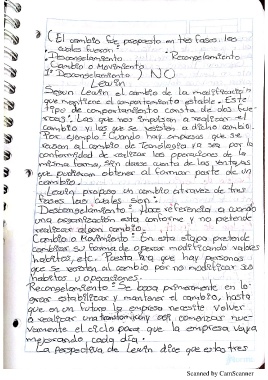 ( El cambio fue propuesto en tres fases. las
cuales fueron:
°Descongelamiento °Recongelamiento
°Cambio o Movimiento
1°Descongelamiento ) NO
Lewin
Según Lewin el cambio de la modificación
que mantiene el comportamiento estable. Este
tipo de comportamiento consta de dos fuer-
zas. Las que nos impulsan a realizar el
cambio y las que se resisten a dicho cambio.
Por ejemplo: Cuando hay empresas que se
niegan al cambio de Tecnología ya sea por la
conformidad de realizar las operaciones de la
misma forma, sin darse cuenta de las ventajas
que pudieran obtener al formar parte de un
cambio.
Lewin propuso un cambio atravez de tres
fases las cuales son:
Descongelamiento: Hace referencia a cuando
una organización está conforme y no pretende
realizar algún cambio.
Cambio o Movimiento: En esta etapa pretende
cambiar su forma de operar modificando valores
habitos, etc. Puesto que hay personas
que se resisten al cambio por no modificar sus
habitos u operaciones.
Recongelamiento: Se basa primeramente en lo-
grar estabilizar y mantener el cambio, hasta
que en un futuro la empresa necesite volver
a realizar una transformación y así comenzar nue-
vamente el ciclo para que la empresa vaya
mejorando cada día.
La perspectiva de Lewin dice que estas tres
Scanned by CamScanner